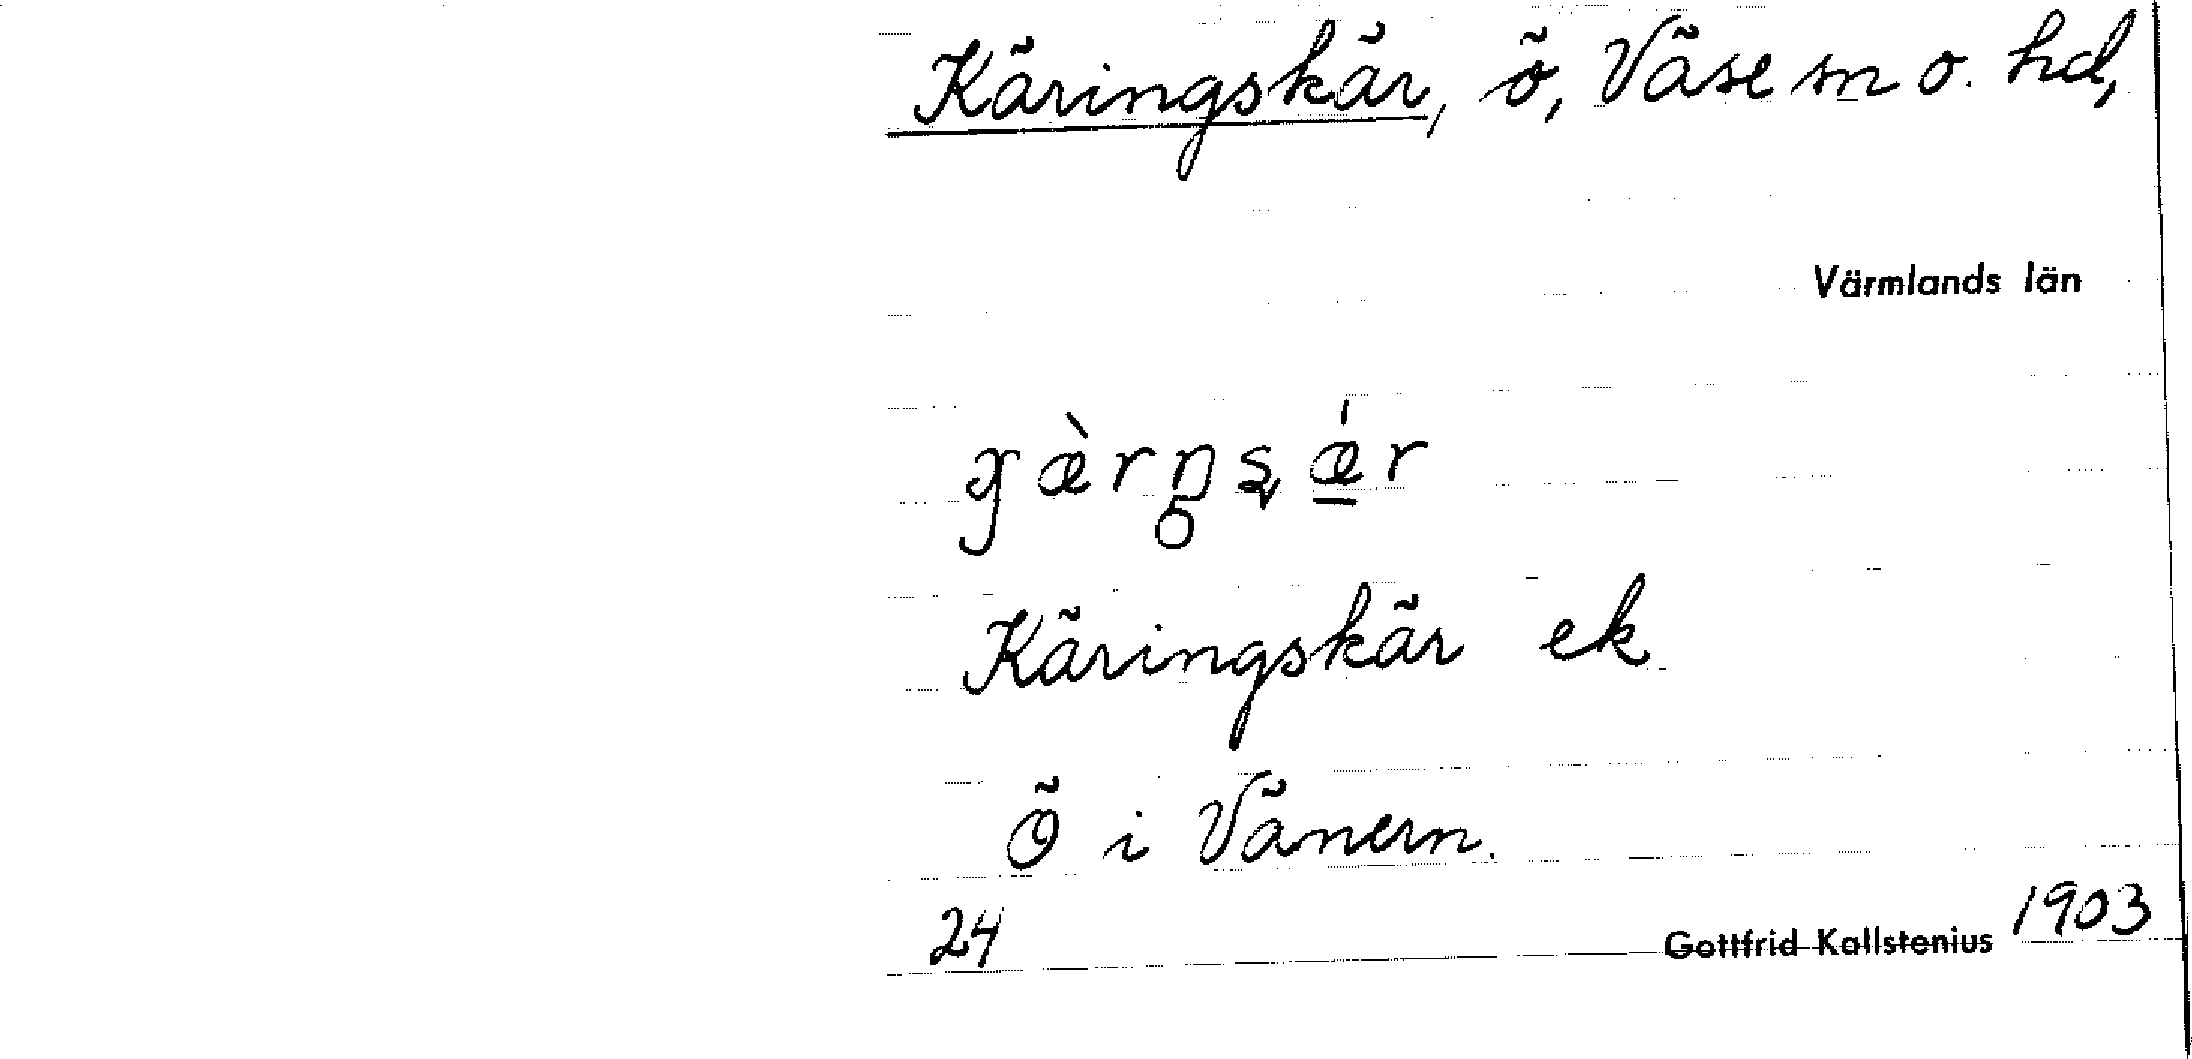 Käringskär, ö, Väse sn o. hd,
Värmlands län
Käringskär ek
Ö i Vänern.
24
Gottfrid Kallstenius 1903